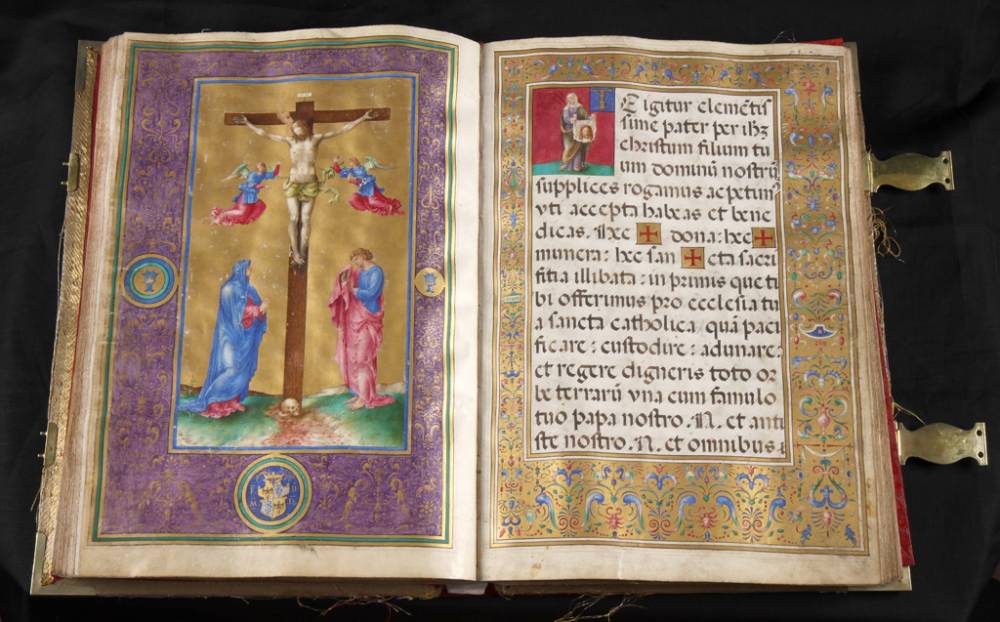 Te igitur clemētis
sime pater per ihʒ
christum filium tu
um dominū nostrū
supplices rogamus ac petim⁹
vti accepta habeas et bene
dicas. hec ✠ dona: hec ✠
munera: hec san ✠ cta sacri
fitia illibata: in primis que ti
bi offerimus pro ecclesia tu
a sancta catholica quā paci
ficare: custodire: adunare:
et regere digneris toto or
be terrarū vna cum famulo
tuo papa nostro .N. et anti
ste nostro .N. et omnibus